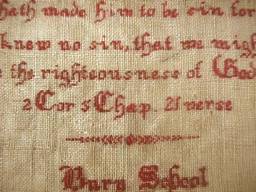 hath made him to be sin for
knew no sin, that we migh
e the righteousness of God
2 Cor 5 Chap. 21 verse
Burn School